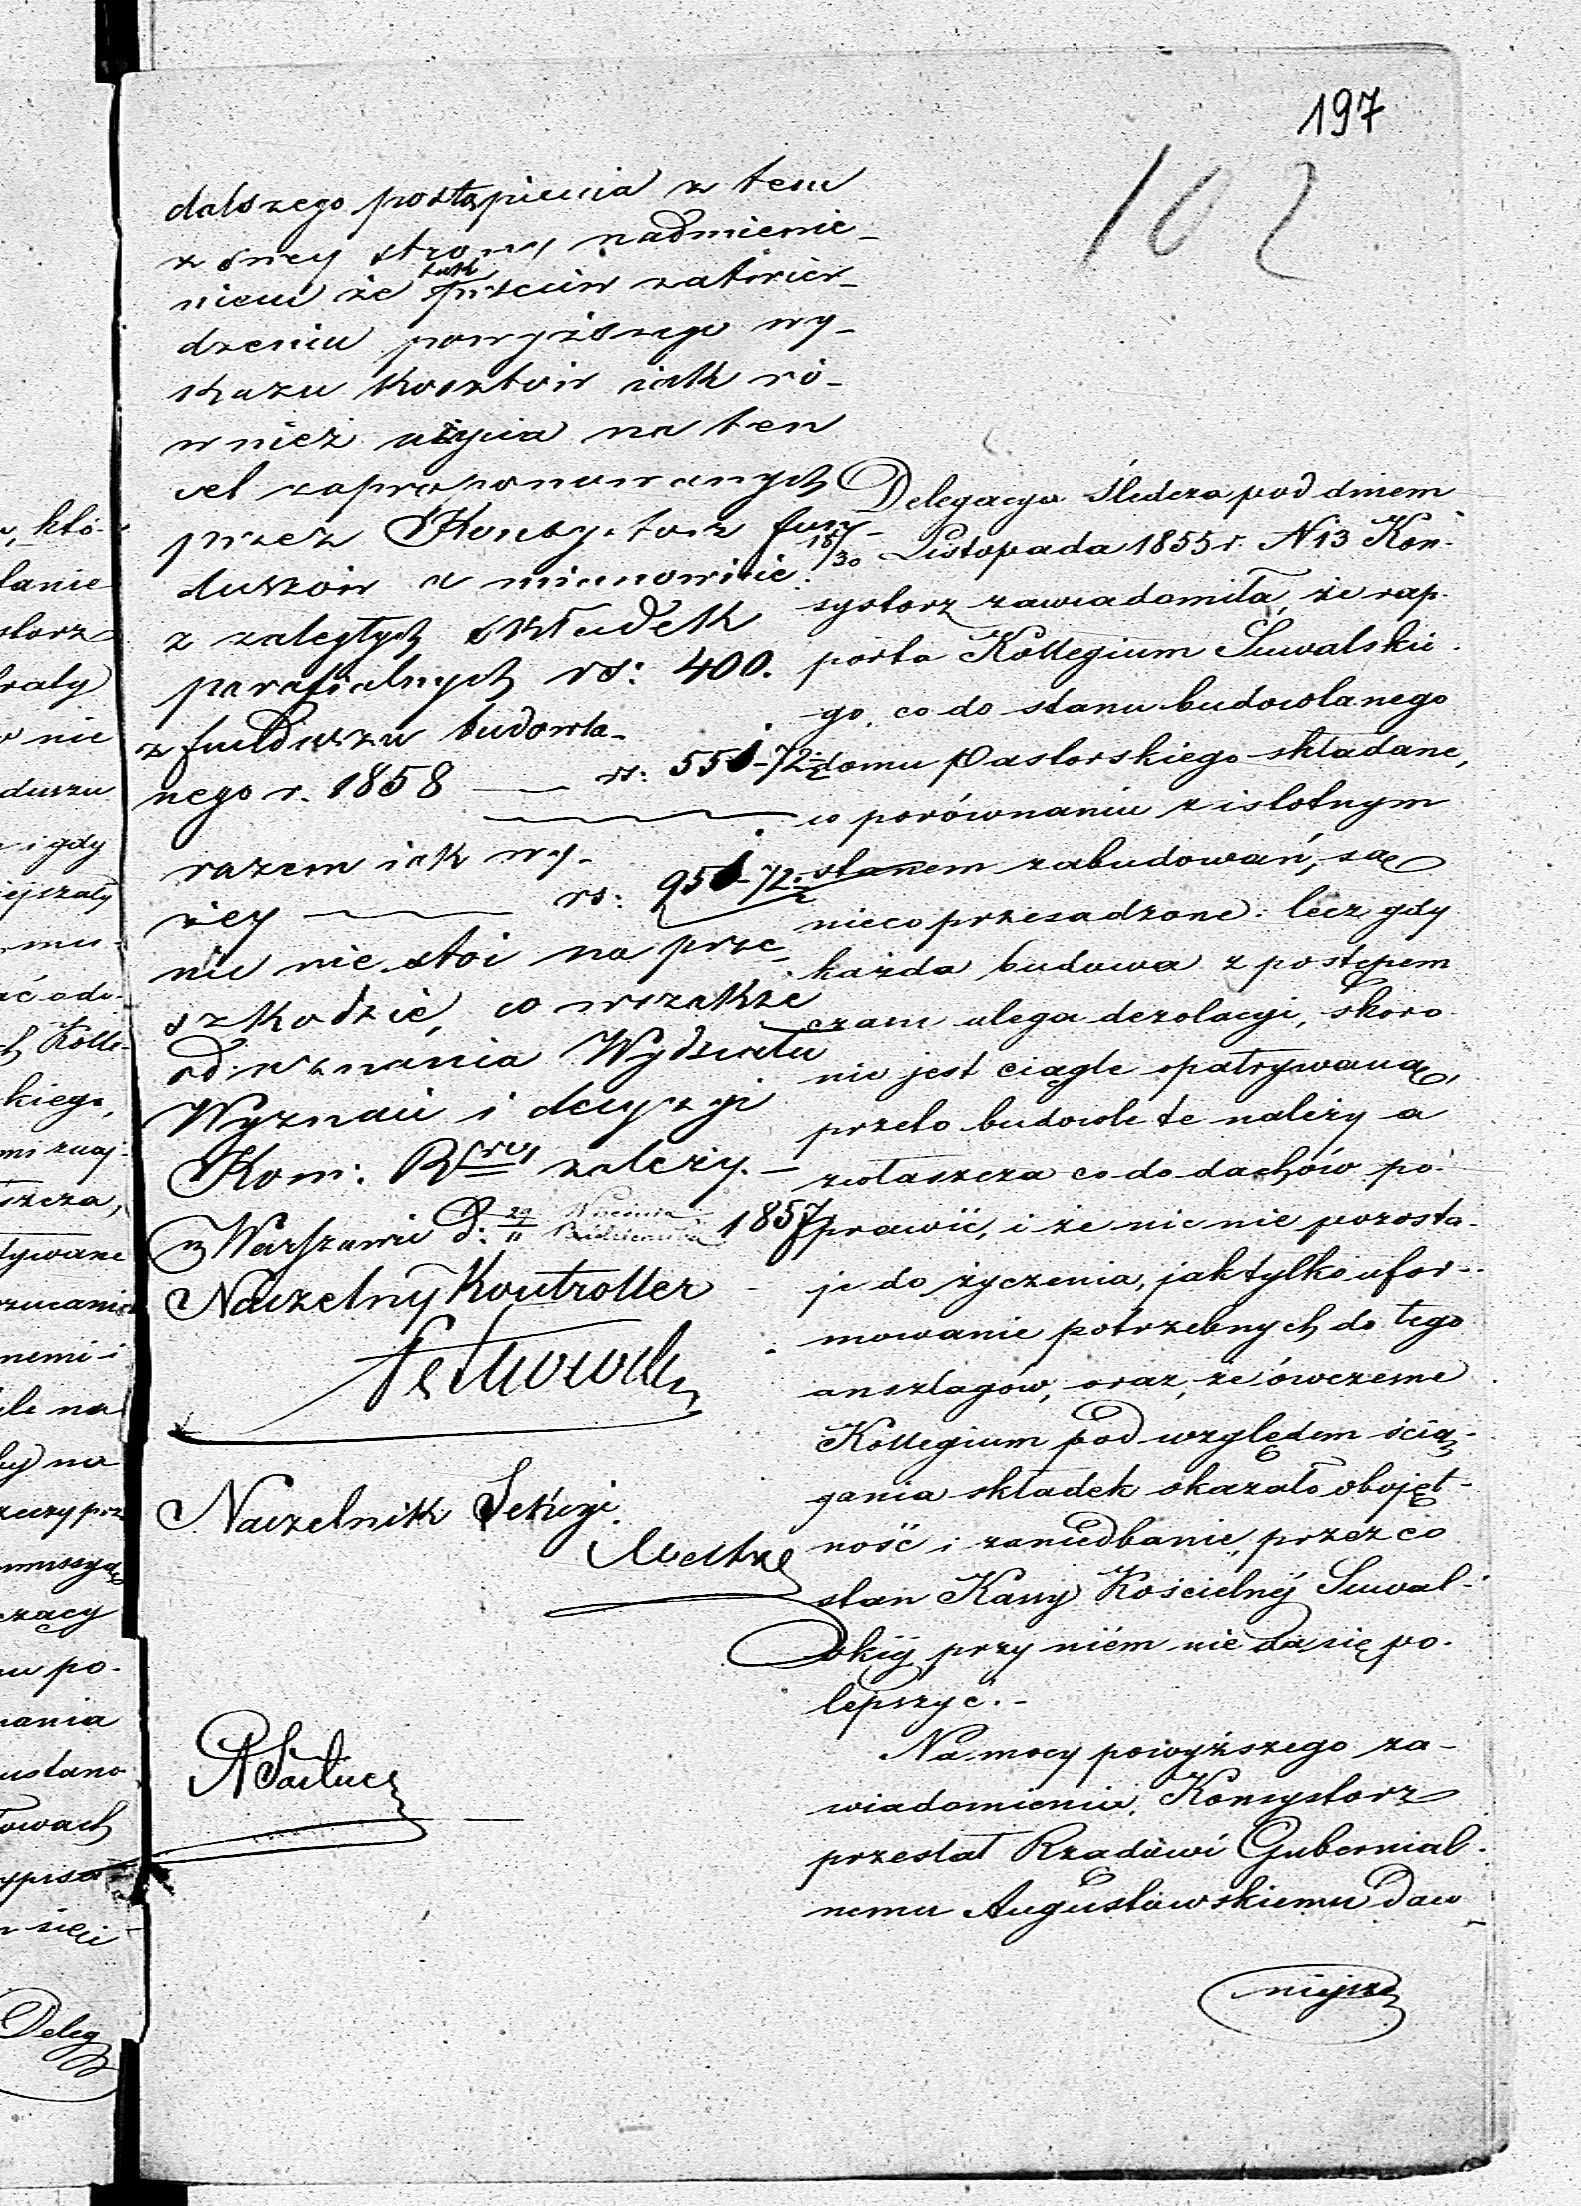 197
102
dalszego postąpienia z tem
z swey strony nadmienie_
niem że tak przeciw zatwier_
dzeniu powyższego wy_
kazu kosztów iak ró_
wnież użycia na ten
cel zaproponowanych
przez Konsystorz fun_
duszów a mianowicie:
z zaległych składek
parafialnych rs: 400.
z funduszu budowla_
nego r. 1858 — rs: 551-72
razem iak wy_
żey — rs: 951-72
nic nie stoi na prze_
szkodzie, co wszakże
od uznania Wydziału
Wyznań i decyzyi
Kom: Rząwy zależy. —
w Warszawie d. 29/11 Września Października 1857
Naczelny Kontroller
Naczelnik Sekcyi.
Delegacya Śledcza pod dniem
18/30 Listopada 1855 r. N 13 Kon-
systorz zawiadomiła, że rap-
porta Kollegium Suwalskie-
go, co do stanu budowlanego
domu Pastorskiego składane,
w porównaniu z istotnym
stanem zabudowań, są
nieco przesadzone: lecz gdy
każda budowa z postępem
czasu ulega dezolacyi, skoro
nie jest ciągle opatrywaną,
przeto budowle te należy a
zwłaszcza co do dachów po-
prawić, i że nic nie pozosta-
je do życzenia, jak tylko ufor-
mowanie potrzebnych do tego
anszlagów, oraz, że ówczesne
Kollegium pod względem ścią-
gania składek okazało obojęt-
ność i zaniedbanie, przez co
stan Kassy Kościelnéj Suwal-
skiéj przy niém nie da się po-
lepszyć. -
Na mocy powyższego za-
wiadomienia, Konsystorz
przesłał Rządowi Gubernial-
nemu Augustowskiemu daw
niejsze